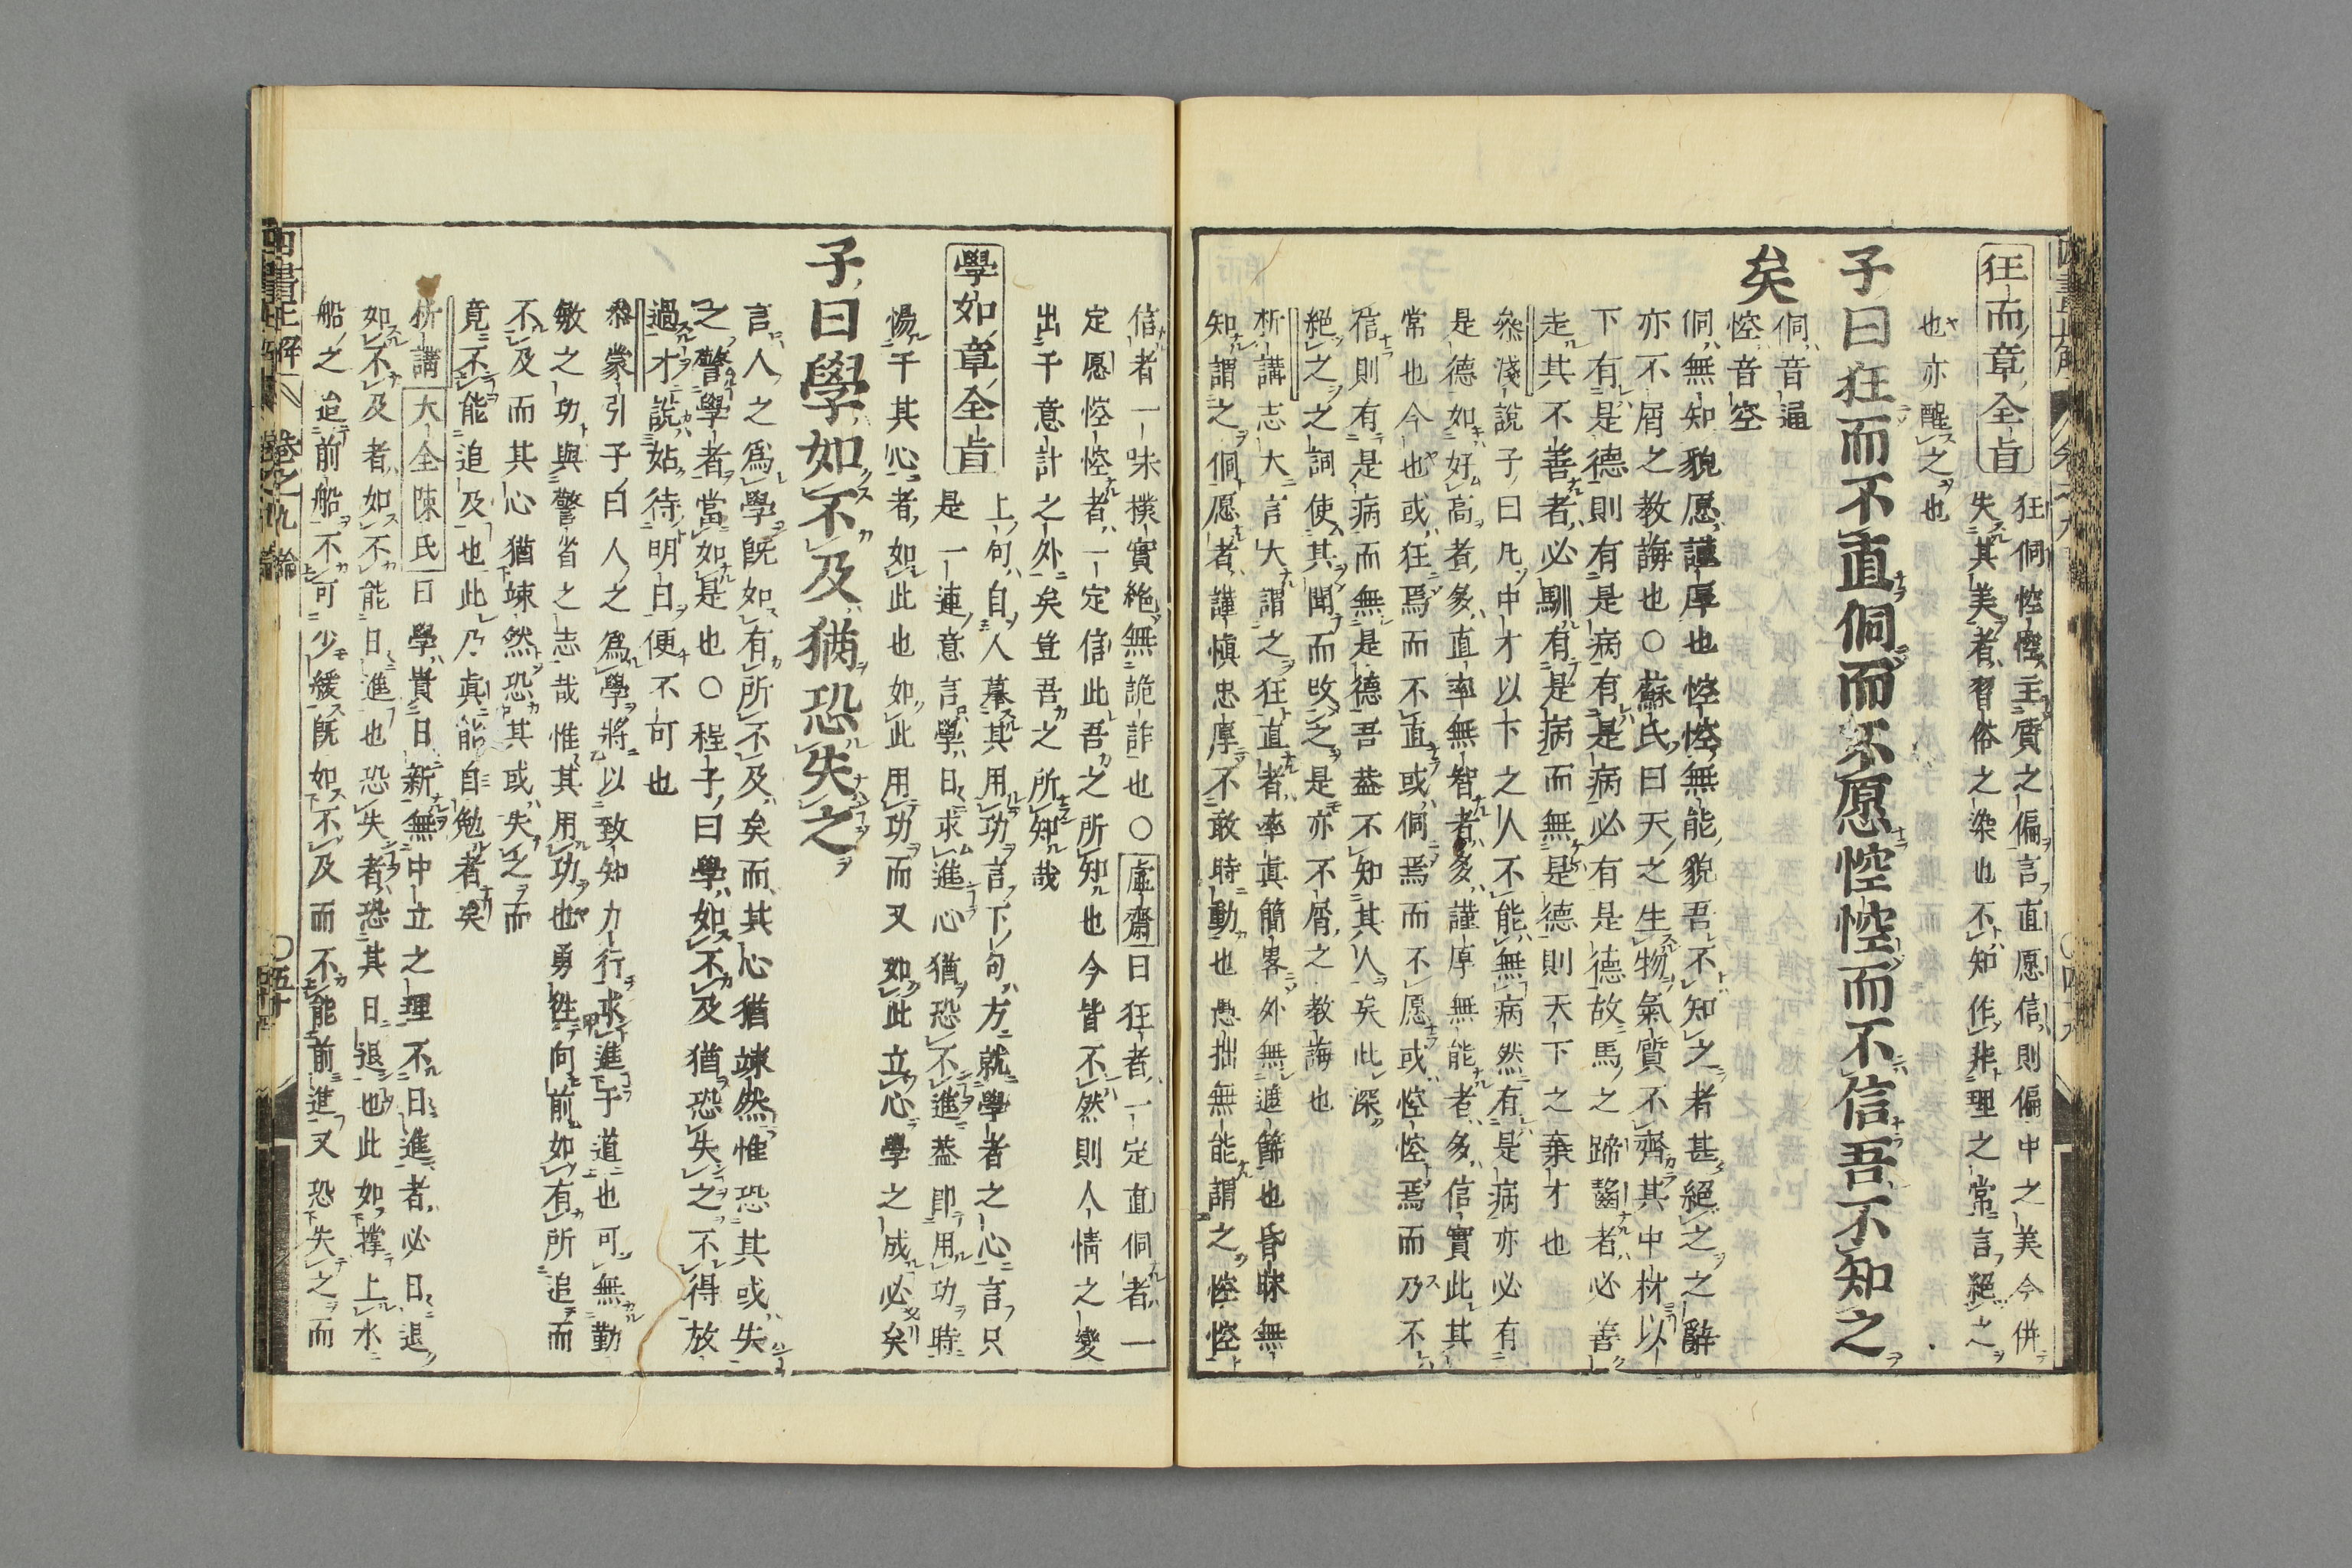 狂而章全旨
狂侗悾悾主質之偏言直愿信則偏中之美今併
失其美者習俗之染也不知作非理之常言絕之
也亦醒之也
子曰狂而不直侗而不愿悾悾而不信吾不知之
矣
侗音通
悾音空
侗無知貌愿謹厚也悾悾無能貌吾不知之者甚絕之之辭
亦不屑之教誨也○蘇氏曰天之生物氣質不齊其中材以
下有是德則有是病有是病必有是德故馬之蹄齧者必善
走其不善者必馴有是病而無是德則天下之棄才也
叅淺說子曰凡中才以下之人不能無病然有是病亦必有
是德如好高者多直率無智者多謹厚無能者多信實此其
常也今也或狂焉而不直或侗焉而不愿或悾悾焉而乃不
信則有是病而無是德吾葢不知其人矣此深
絕之之詞使其聞而改之是亦不屑之教誨也
析講志大言大謂之狂直者率真簡畧外無遮飾也昏昧無
知謂之侗愿者謹慎忠厚不敢時動也愚拙無能謂之悾悾
信者一味樸實絕無詭詐也○虛齋曰狂者一定直侗者一
定愿悾悾者一定信此吾之所知也今皆不然則人情之變
出于意計之外矣豈吾之所知哉
學如章全旨
上句自人摹其用功言下句方就學者之心言只
是一連意言學日求進心猶恐不進葢即用功時
惕于其心者如此也如此用功而又如此立心學之成必矣
子曰學如不及猶恐失之
言人之為學既如有所不及矣而其心猶竦然惟恐其或失
之警學者當如是也○程子曰學如不及猶恐失之不得放
過才說姑待明日便不可也
叅蒙引子曰人之為學將以致知力行求進于道也可無勤
敏之功與警省之志哉惟其用功也勇往向前如有所追而
不及而其心猶竦然恐其或失之而
竟不能追及也此乃真能自勉者矣
析講大全陳氏曰學貴日新無中立之理不日進者必日退
如不及者如不能日進也恐失者恐其日退也此如撑上水
船之追前船不可少緩既如不及而不能前進又恐失之而
四書正解
卷之九
論
五十